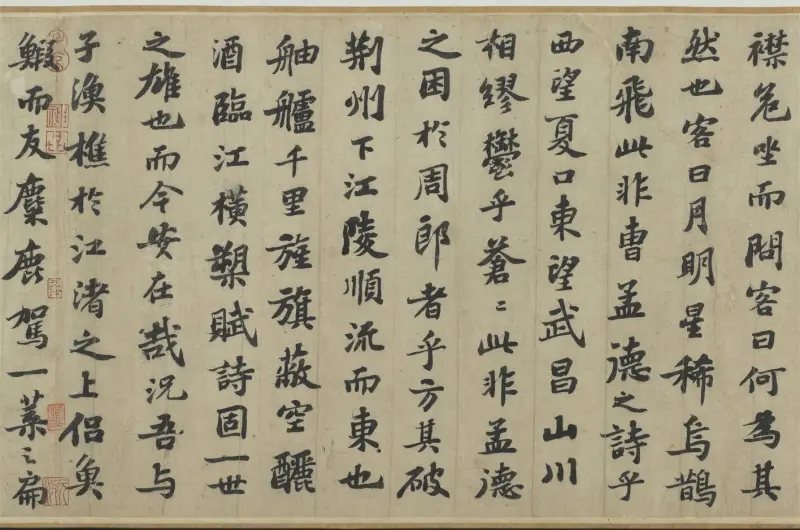 襟危坐而問客曰何為其
然也客曰月明星稀烏鵲
南飛此非曹孟德之詩乎
西望夏口東望武昌山川
相繆鬱乎蒼〻此非孟德
之困於周郎者乎方其破
荊州下江陵順流而東也
舳艫千里旌旗蔽空釃
酒臨江橫槊賦詩固一世
之雄也而今安在哉況吾與
子漁樵於江渚之上侶魚
鰕而友麋鹿駕一葉之扁